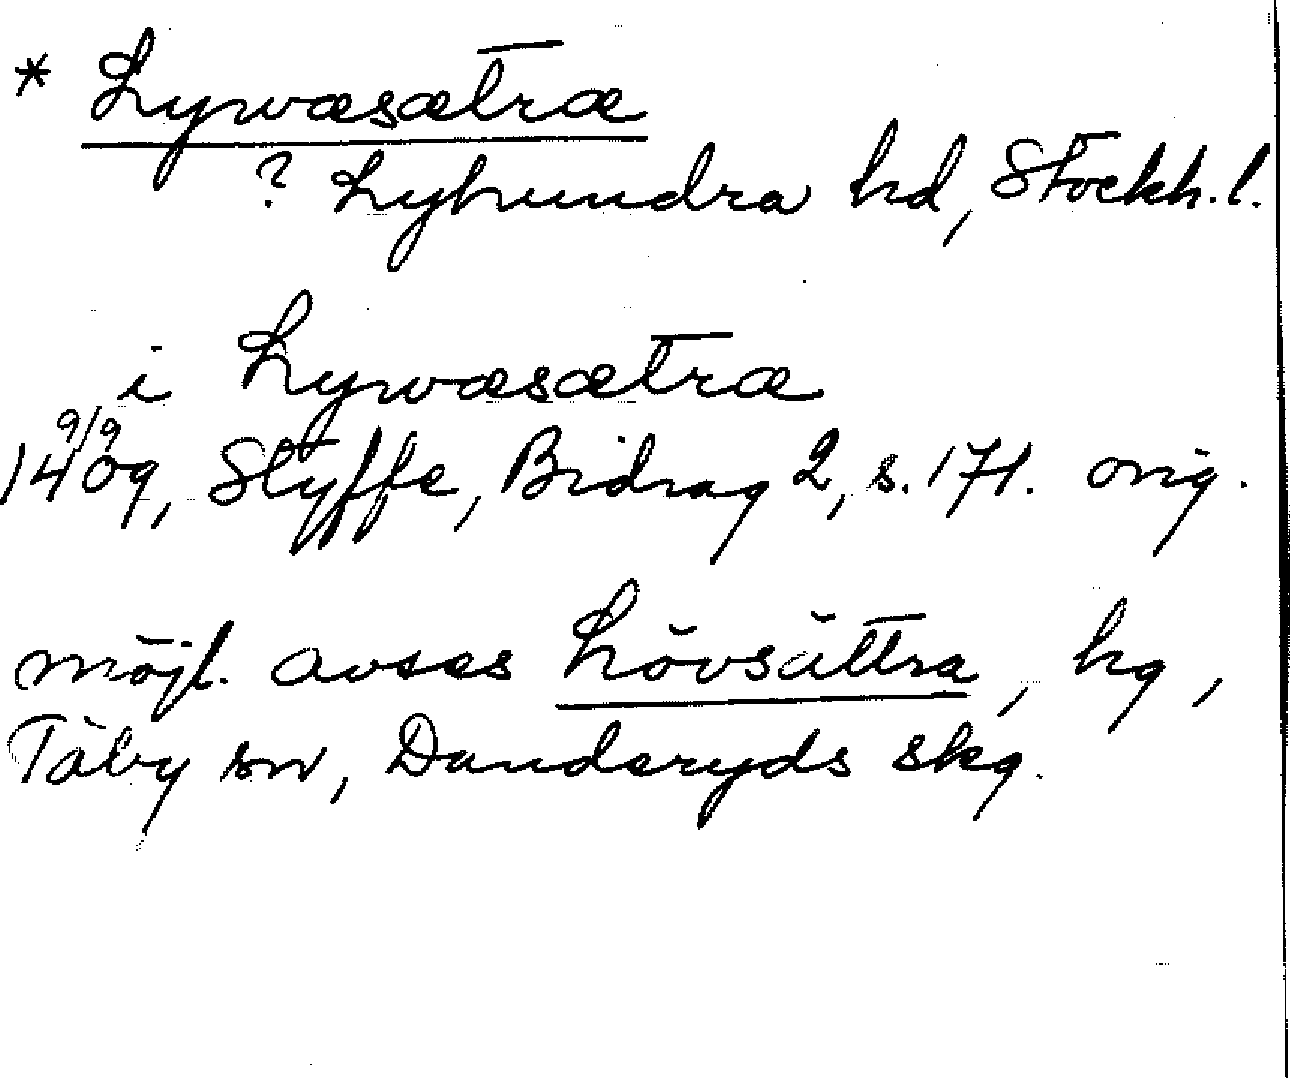 * Lywæsætræ
? Lyhundra hd, Stockh. l.
i Lywæsætræ
1409 9/9, Styffe, Bidrag 2, s. 171. orig.
möjl. avses Lövsättra, hg,
Täby sn, Danderyds skg.